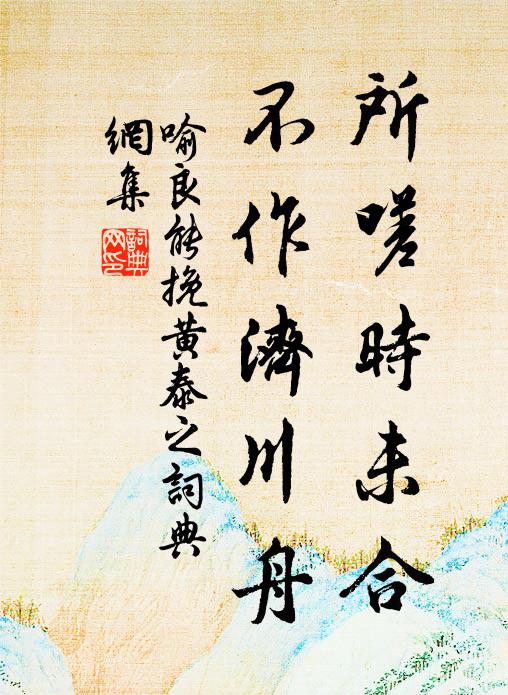 所嗟時未合
不作濟川舟
喻良能挽黄泰之詞典
網集
詞典
网印